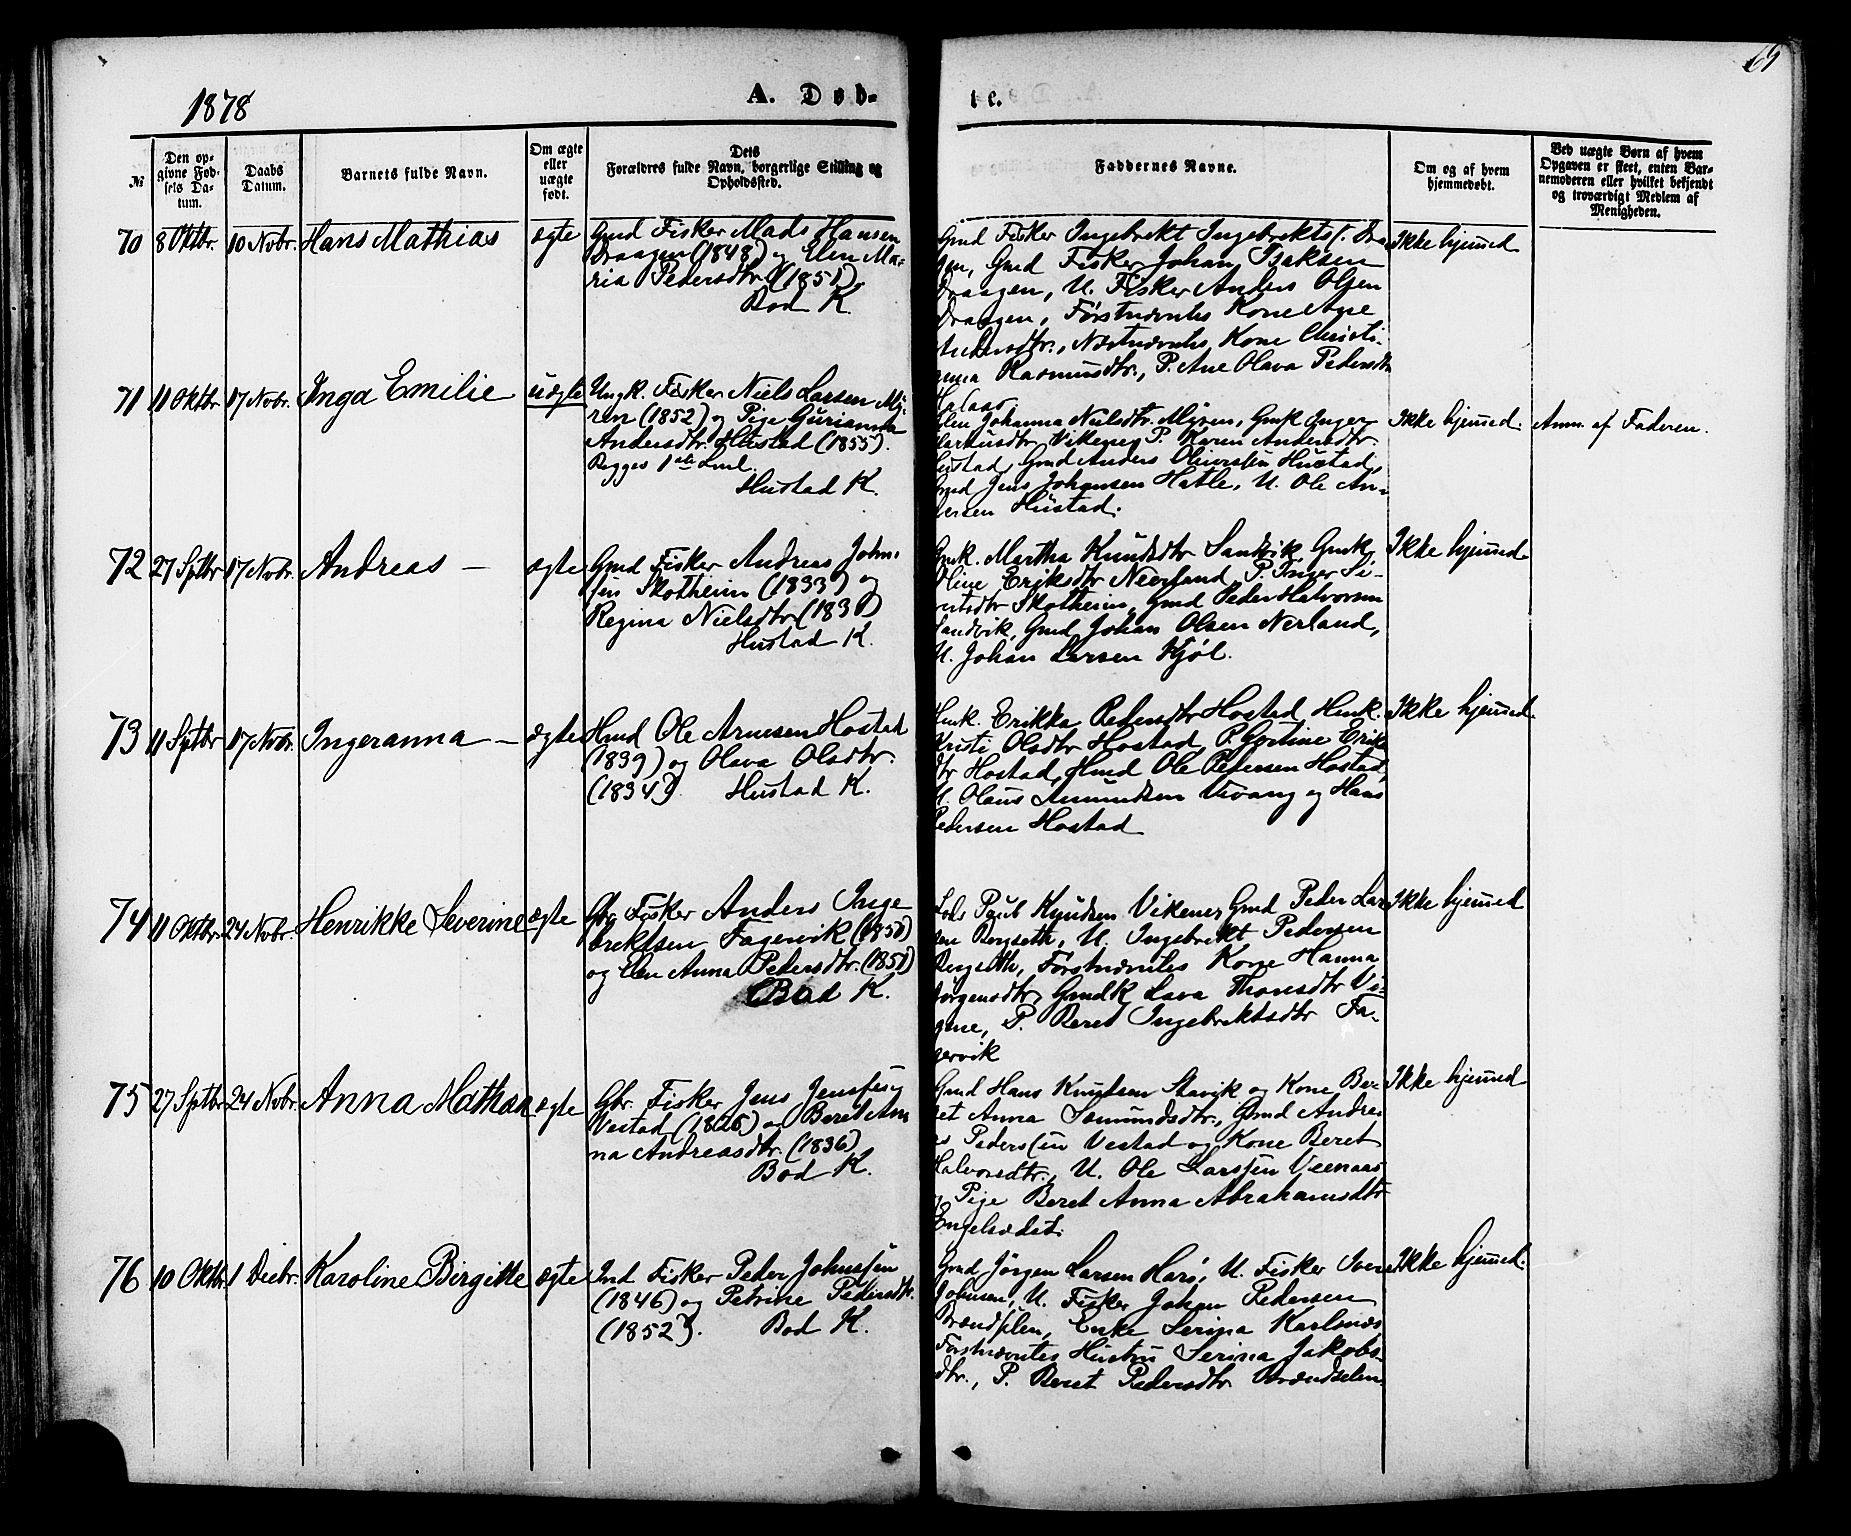 69
1878
A. Døb-
te.
№
Den op-
givne Fød-
sels Da-
tum.
Daabs
Datum.
Barnets fulde Navn.
Om ægte
eller
uægte
født.
Dets
Forældres fulde Navn, borgerlige Stilling og
Opholdssted.
Faddernes Navne.
Om og af hvem
hjemmedøbt.
Ved uægte Børn af hvem
Opgaven er skeet, enten Bar-
nemoderen eller hvilket bekjendt
og troværdigt Medlem af
Menigheden.
70 8 Oktbr. 10 Novbr. Hans Mathias ægte
Gmd Fisker Mads Hansen
Draagen (1848) og Elen Ma-
ria Pedersdtr. (1851).
Bod K.
Gmd Fisker Ingebrekt Ingebrektsf. Dra-
gen, Gmd Fisker Johan Isaksen
Draagen, U. Fisker Anders Olsen
Draagen, Førstnævntes Kone Ane
Andersdtr., Næstnævntes Kone Christi-
anna Rasmusdtr., P. Ane Olava Pedersdtr
Ikke hjemmed
71 11 Oktbr 17 Novbr. Inga Emilie uægte
Ungk. Fisker Niels Larsen My-
ren (1852) og Pige Gurianna
Andersdtr. Hustad (1855).
Begges 1ste Leml.
Hustad K.
Elen Johanna Nielsdtr. Myren, Gmk Inger
Markusdtr Vikenes P. Karen Andersdtr.
Hustad, Gmd Anders Oliversen Hustad,
Gmd Jens Johansen Hatle, U. Ole An-
dersen Hustad.
Ikke hjemmed.
Anm. af Faderen.
72 27 Sptbr 17 Novbr. Andreas — ægte
Gmd Fisker Andreas John-
sen Skotheim (1833) og
Regina Nielsdtr (1831)
Hustad K.
Gmk. Martha Knudsdtr Sandvik, Gmk.
Oline Eriksdtr Neerland, P. Inger Si-
vertsdtr Skotheim, Gmd Peder Halvorsen
Sandvik, Gmd Johan Olsen Nerland,
U. Johan Larsen Kjøl.
Ikke hjemmed
73 11 Sptbr 17 Novbr. Ingeranna — ægte
Hmd Ole Arnesen Hostad
(1839) og Olava Olsdtr.
(1834). Hustad K.
Hmk. Erikka Pedersdtr Hostad, Hmk.
Kristi Olsdtr Hostad, P. Gjertine Eriks
dtr Hostad, Hmd Ole Pedersen Hostad,
U. Olaus Amundsen Urvang og Hans
Pedersen Hostad
Ikke hjemmed.
74 11 Oktbr. 24 Novbr. Henrikke Severine ægte
Gbr Fisker Anders Inge
brektsen Fagervik (1850)
og Elen Anna Pedersdtr. (1851)
Bod K.
Lods Paul Knudsen Vikenes Gmd Peder Lar
sen Bergseth, U. Ingebrekt Pedersen
Bergseth, Førstnævntes Kone Hanna
Jørgensdtr, Gmdk Lava Thomsdtr Vi-
kene, P. Beret Ingebrektsdtr Fa-
gervik
Ikke hjemmed
75 27 Sptbr 24 Novbr. Anna Mathea ægte
Gbr. Fisker Jens Jensen
Vestad (1826) og Beret An
na Andreasdtr. (1836)
Bod K.
Gmd Hans Knudsen Stavik og Kone Be-
ret Anna Samundsdtr., Gmd Andre-
as Pedersen Vestad og Kone Beret
Halvorsdtr., U. Ole Larssen Veenaas
og Pige Beret Anna Abrahamsdtr
Engelsædet.
Ikke hjemmed
76 10 Oktbr. 1 Decbr. Karoline Birgitte ægte
Ind Fisker Peder Johnsen
(1846) og Petrine Pedersdtr.
(1852). Bod K.
Gmd Jørgen Larsen Harø, U. Fisker Iver
Johnsen, U. Fisker Johan Pedersen
Brændslen, Enke Serina Karlsnæs
Førstnævntes Hustru Serina Jakobs-
dtr., P. Beret Pedersdtr Brændselen
Ikke hjemmed.